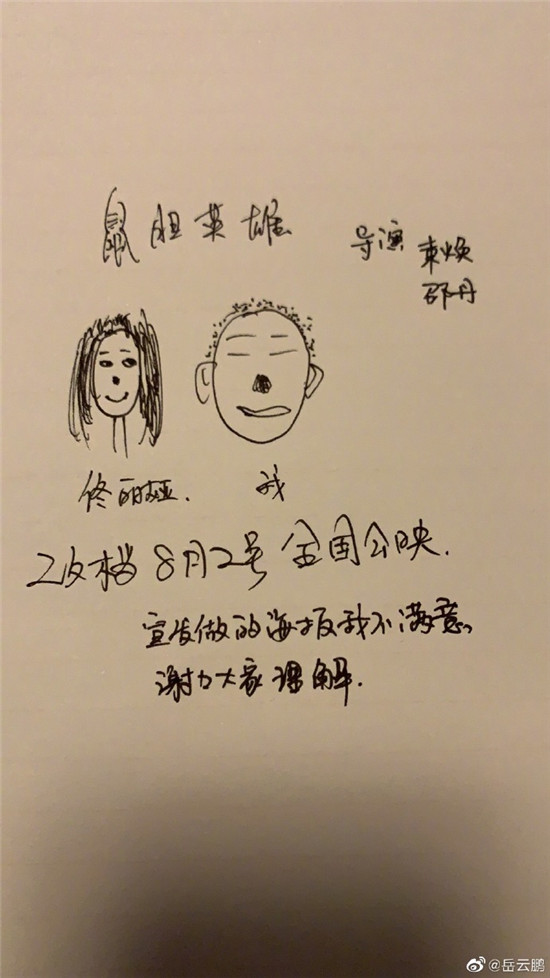 鼠胆英雄
导演 束焕
邵丹
佟丽娅. 我
改档8月2号全国公映.
宣发做的海报我不满意,
谢谢大家理解.
@岳云鹏